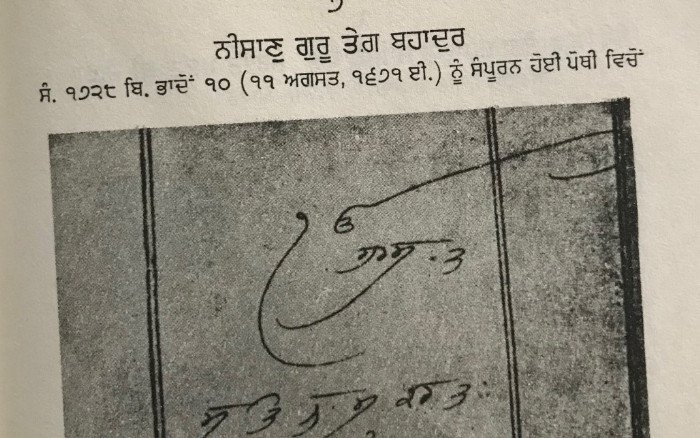 ਨੀਸਾਣੁ ਗੁਰੂ ਤੇਗ਼ ਬਹਾਦੁਰ
ਸੰ. ੧੭੨੮ ਬਿ. ਭਾਦੋਂ ੧੦ (੧੧ ਅਗਸਤ, ੧੬੭੧ ਈ.) ਨੂੰ ਸੰਪੂਰਨ ਹੋਈ ਪੋਥੀ ਵਿਚੋਂ
ਸਤਿ